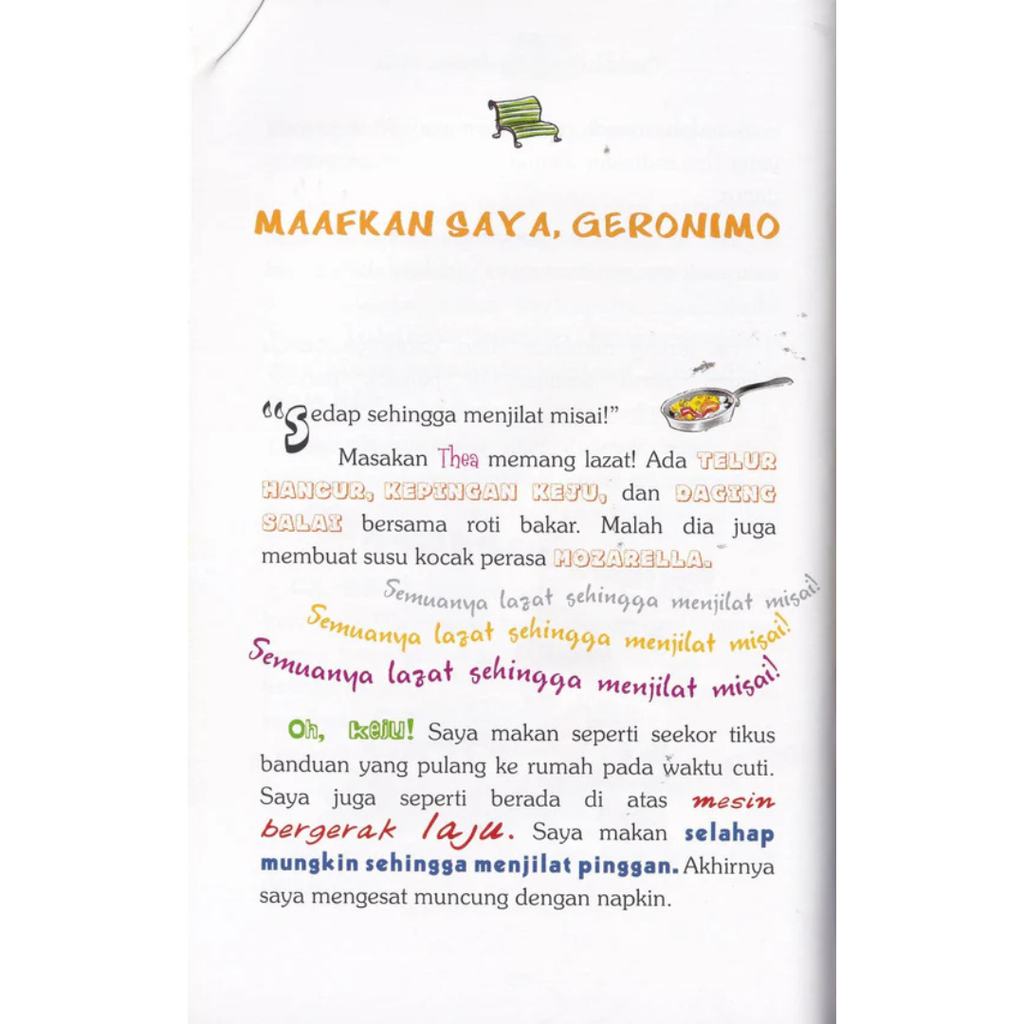 MAAFKAN SAYA, GERONIMO
“Sedap sehingga menjilat misai!”
Masakan Thea memang lazat! Ada TELUR
HANCUR, KEPINGAN KEJU, dan DAGING
SALAI bersama roti bakar. Malah dia juga
membuat susu kocak perasa MOZARELLA.
Semuanya lazat sehingga menjilat misai!
Semuanya lazat sehingga menjilat misai!
Semuanya lazat sehingga menjilat misai!
Oh, keju! Saya makan seperti seekor tikus
banduan yang pulang ke rumah pada waktu cuti.
Saya juga seperti berada di atas mesin
bergerak laju. Saya makan selahap
mungkin sehingga menjilat pinggan. Akhirnya
saya mengesat muncung dengan napkin.